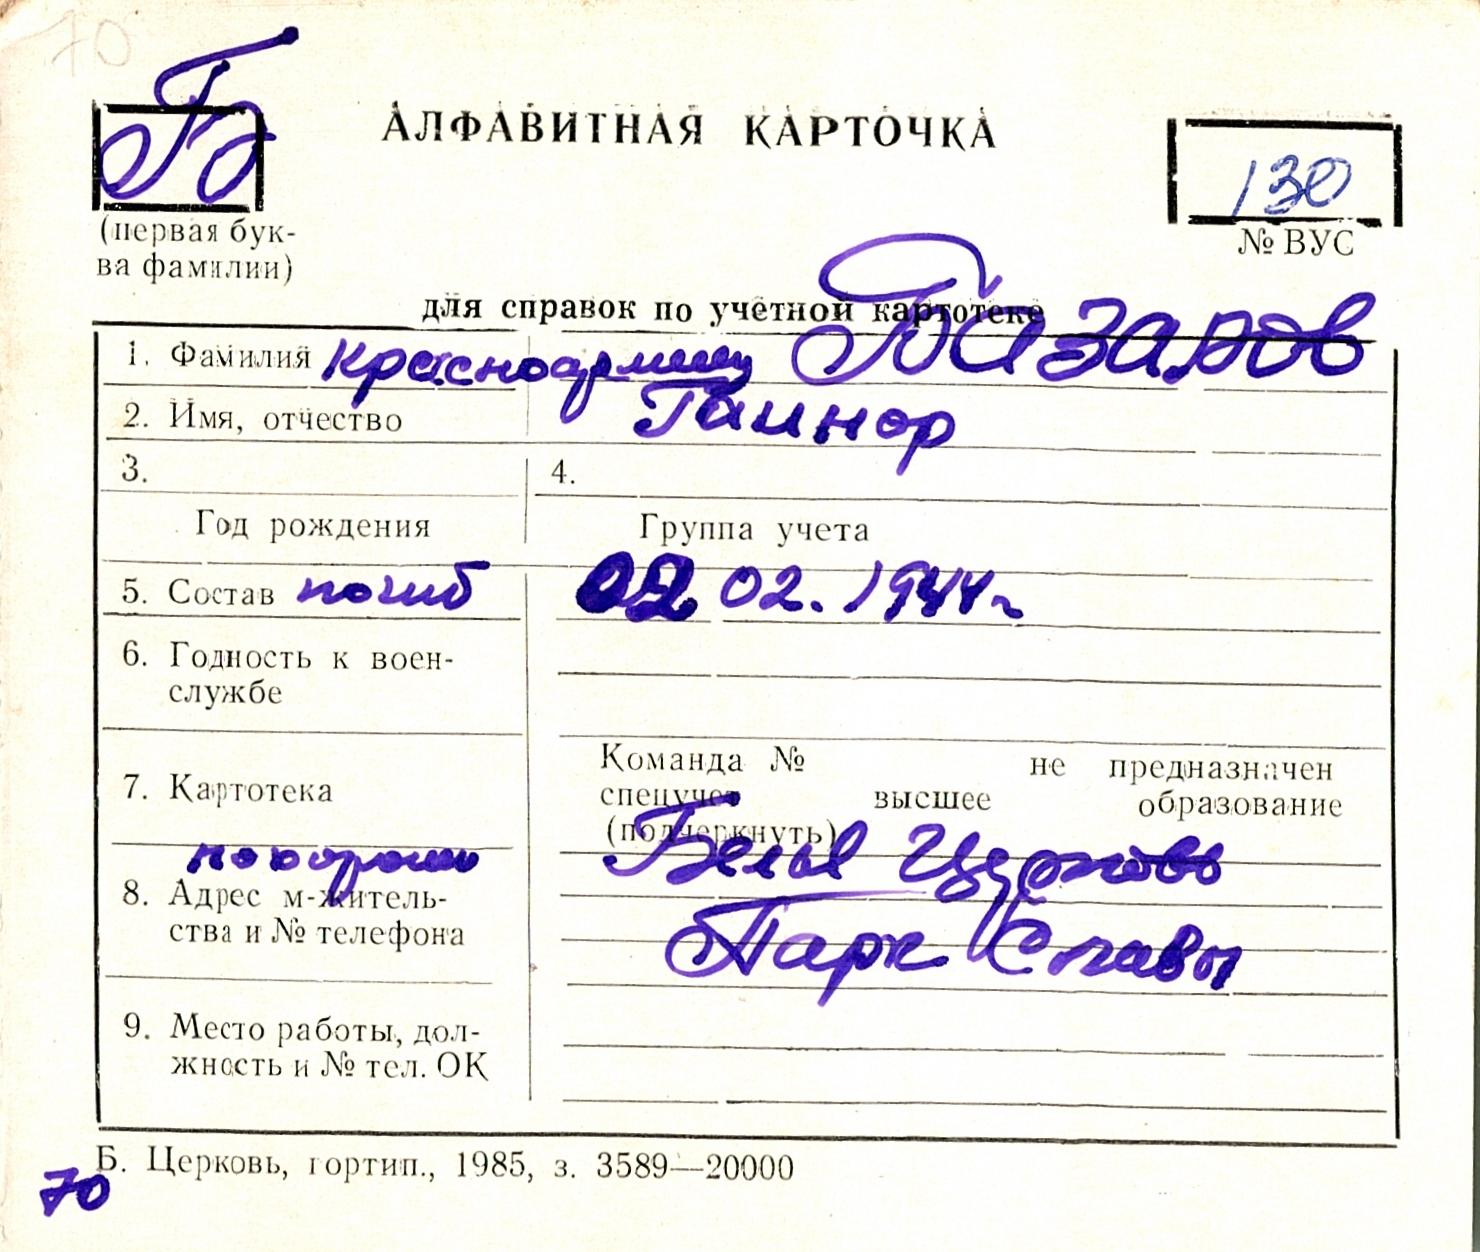 70
Б
АЛФАВИТНАЯ КАРТОЧКА
130
(первая бук-
ва фамилии)
№ ВУС
для справок по учетной картотеке
1. Фамилия красноармеец Базаров
2. Имя, отчество Гаинор
3. 4.
Год рождения Группа учета
5. Состав погиб 02 02. 1944 г
6. Годность к воен-
службе
Команда № не предназначен
7. Картотека спецучет высшее образование
(подчеркнуть)
похоронен Белая Церковь
8. Адрес м-житель-
ства и № телефона Парк Славы
9. Место работы, дол-
жность и № тел. ОК
Б. Церковь, гортип., 1985, з. 3589—20000
70